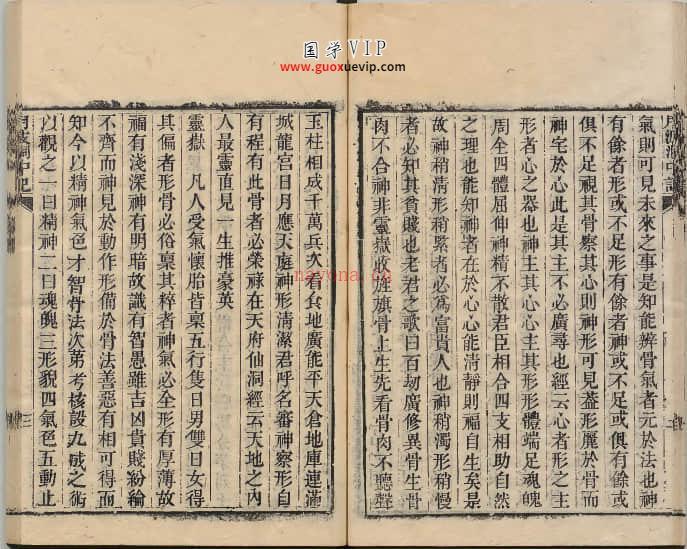 国学VIP
www.guoxuevip.com
氣則可見未來之事是知能辨骨氣者元於法也神
有餘者形或不足形有餘者神或不足或俱有餘或
俱不足視其骨察其心則神形可見蓋形麗於骨而
神宅於心此是其主不必廣尋也經云心者形之主
形者心之器也神主其心心主其形形體端足魂魄
周全四體屈伸神精不散君臣相合四支相助自然
之理也能知神者在於心心能清靜則福自生矣是
故神稍清形稍緊者必為富貴人也神稍濁形稍慢
者必知其貧賤也老君之歌曰百劫廣修異骨生骨
肉不合神非靈嶽收旌旗骨上生先看骨肉不聽聲
玉柱相成千萬兵次看食地廣能平天倉地庫連滿
城龍宮日月應天庭神形清潔君呼名審神察形自
有程有此骨者必榮祿在天府仙洞經云天地之內
人最靈直見一生推豪英
靈嶽 凡人受氣懷胎皆稟五行隻日男雙日女得
其偏者形骨必俗稟其粹者神氣必全形有厚薄故
福有淺深神有明暗故識有智愚雖吉凶貴賤紛綸
不齊而神見於動作形備於骨法善惡有相可得而
知今以精神氣色才智骨法次第考核設九成之術
以觀之一曰精神二曰魂魄三形貌四氣色五動止
月波洞中記
三
nayona.cn